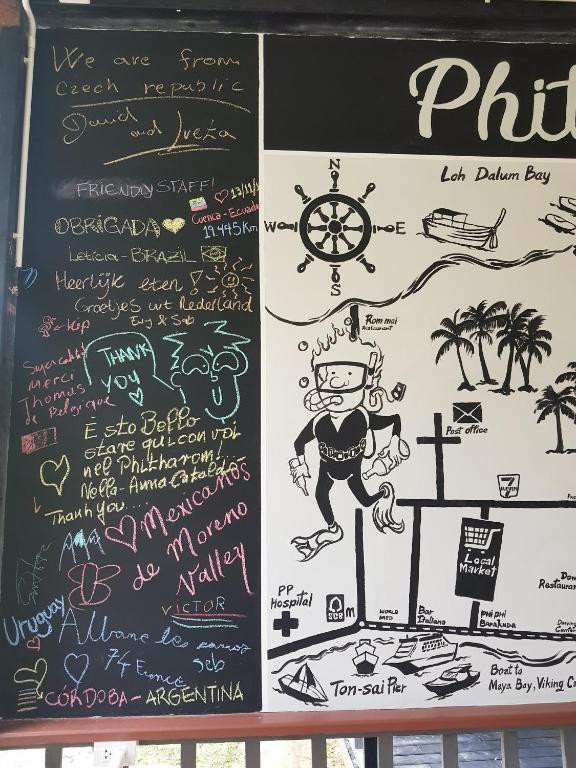 We are from
Czech republic
David
and Iveta
FRIENDLY STAFF!
13/11/1
Cuenca - Ecuador
19.445 Km
OBRIGADA
Leticia - BRAZIL
Heerlijk eten!
Groetjes uit Nederland
Eug & Seb
- Kip
Merci
Thomas
de Belgique
THANK
YOU
È sto Bello
stare qui con voi
nel Phitharom!
Nella - Anna - Cataldo
Thank you...
Mexicanos
de Moreno
Valley
VICTOR
Uruguay
74 France
Seb
CÓRDOBA - ARGENTINA
Phi
N
W
E
S
Loh Dalum Bay
Rom mai
Restaurant
Post office
7
ELEVEN
Local
Market
PP
Hospital
SCB
WORLD
MED
Bar
Italiano
PHI PHI
Barakuda
Restaura
Ton-sai Pier
Boat to
Maya Bay, Viking Ca